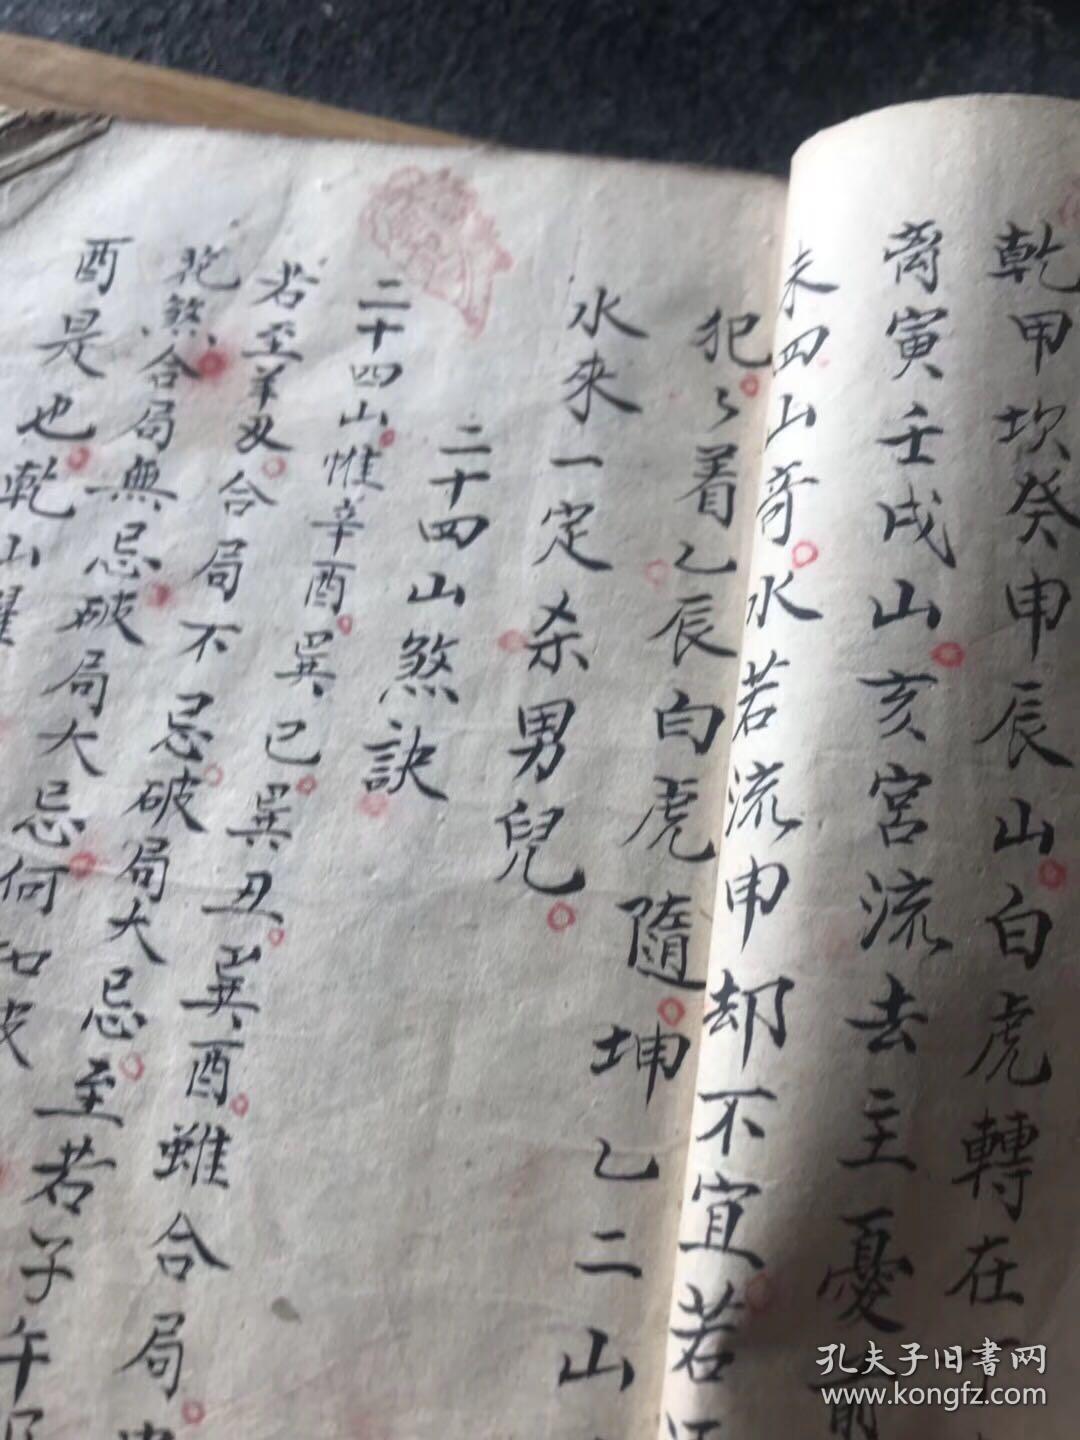 乾甲坎癸申辰山白虎轉在
离寅壬戌山亥宮流去主憂
未四山奇水若流申却不宜若
犯々着乙辰白虎隨坤乙二山
水來一定杀男兒
二十四山煞訣
二十四山惟辛酉巽巳巽丑巽酉雖合局
若至羊刄合局不忌破局大忌至若子午
犯煞合局無忌破局大忌何如破
酉是也乾山
孔夫子旧書网
www.kongfz.com